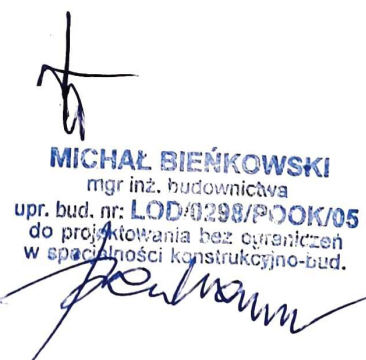 MICHAŁ BIEŃKOWSKI
mgr inż. budownictwa
upr. bud. nr: LOD/0298/POOK/05
do projektowania bez ograniczeń
w specjalności konstrukcyjno-bud.